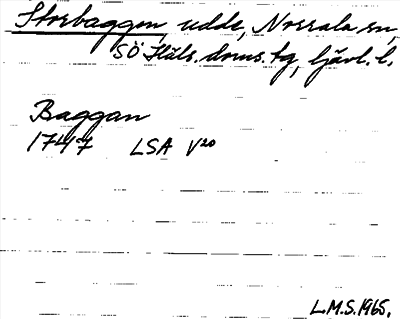 Storbaggon udde, Norrala sn,
SÖ Häls. doms. tg, Gävl. l.
Baggan
1747 LSA V20
L.M.S. 1965.